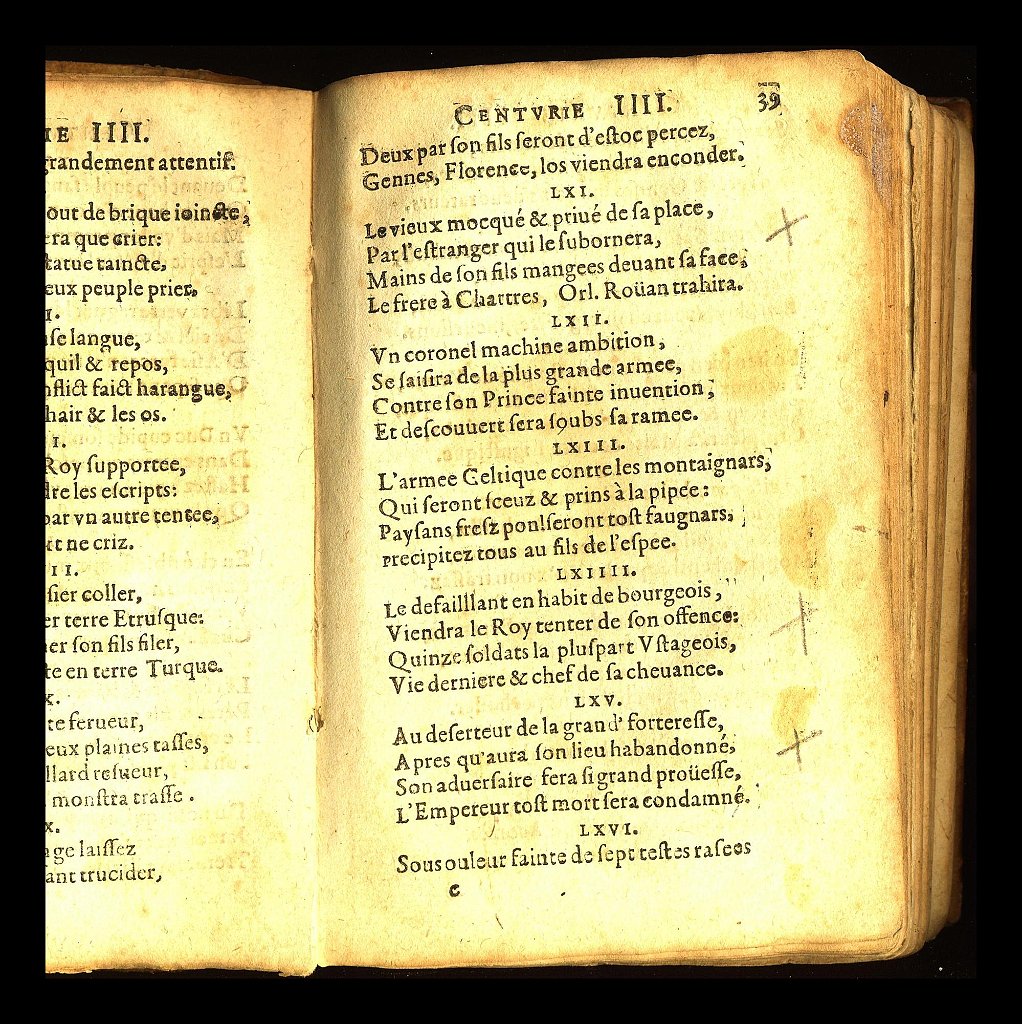 IE IIII.
grandement attentif.
out de brique ioincte,
era que crier:
tatue taincte,
eux peuple prier,
I.
se langue,
quil & repos,
nflict faict harangue,
hair & les os.
I.
Roy supportee,
dre les escripts:
par vn autre tentee,
t ne criz.
II.
sier coller,
er terre Etrusque:
er son fils filer,
te en terre Turque.
X.
te ferueur,
eux plaines tasses,
llard resueur,
monstra trasse.
X.
ge laissez
ant trucider,
CENTVRIE IIII. 39
Deux par son fils seront d'estoc percez,
Gennes, Florence, los viendra enconder.
LXI.
Le vieux mocqué & priué de sa place,
Par l'estranger qui le subornera,
Mains de son fils mangees deuant sa face,
Le frere à Chartres, Orl. Roüan trahira.
LXII.
Vn coronel machine ambition,
Se saisira de la plus grande armee,
Contre son Prince fainte inuention,
Et descouuert sera soubs sa ramee.
LXIII.
L'armee Celtique contre les montaignars,
Qui seront sceuz & prins à la pipee:
Paysans fresz ponlseront tost faugnars,
Precipitez tous au fils de l'espee.
LXIIII.
Le defailllant en habit de bourgeois,
Viendra le Roy tenter de son offence:
Quinze soldats la pluspart Vstageois,
Vie derniere & chef de sa cheuance.
LXV.
Au deserteur de la grand' forteresse,
Apres qu'aura son lieu habandonné,
Son aduersaire fera si grand proüesse,
L'Empereur tost mort sera condamné.
LXVI.
Sous ouleur fainte de sept testes rasees
c